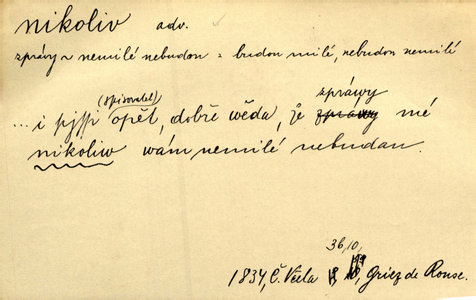 nikoliv adv.
zprávy ~ nemilé nebudou = budou milé, nebudou nemilé
(spisovatel) zprávy
... i pjssi opět, dobře wěda, že zprawy mé
nikoliw wám nemilé nebudau.
36,10,
1834, Č. Včela Griez de Ronse.